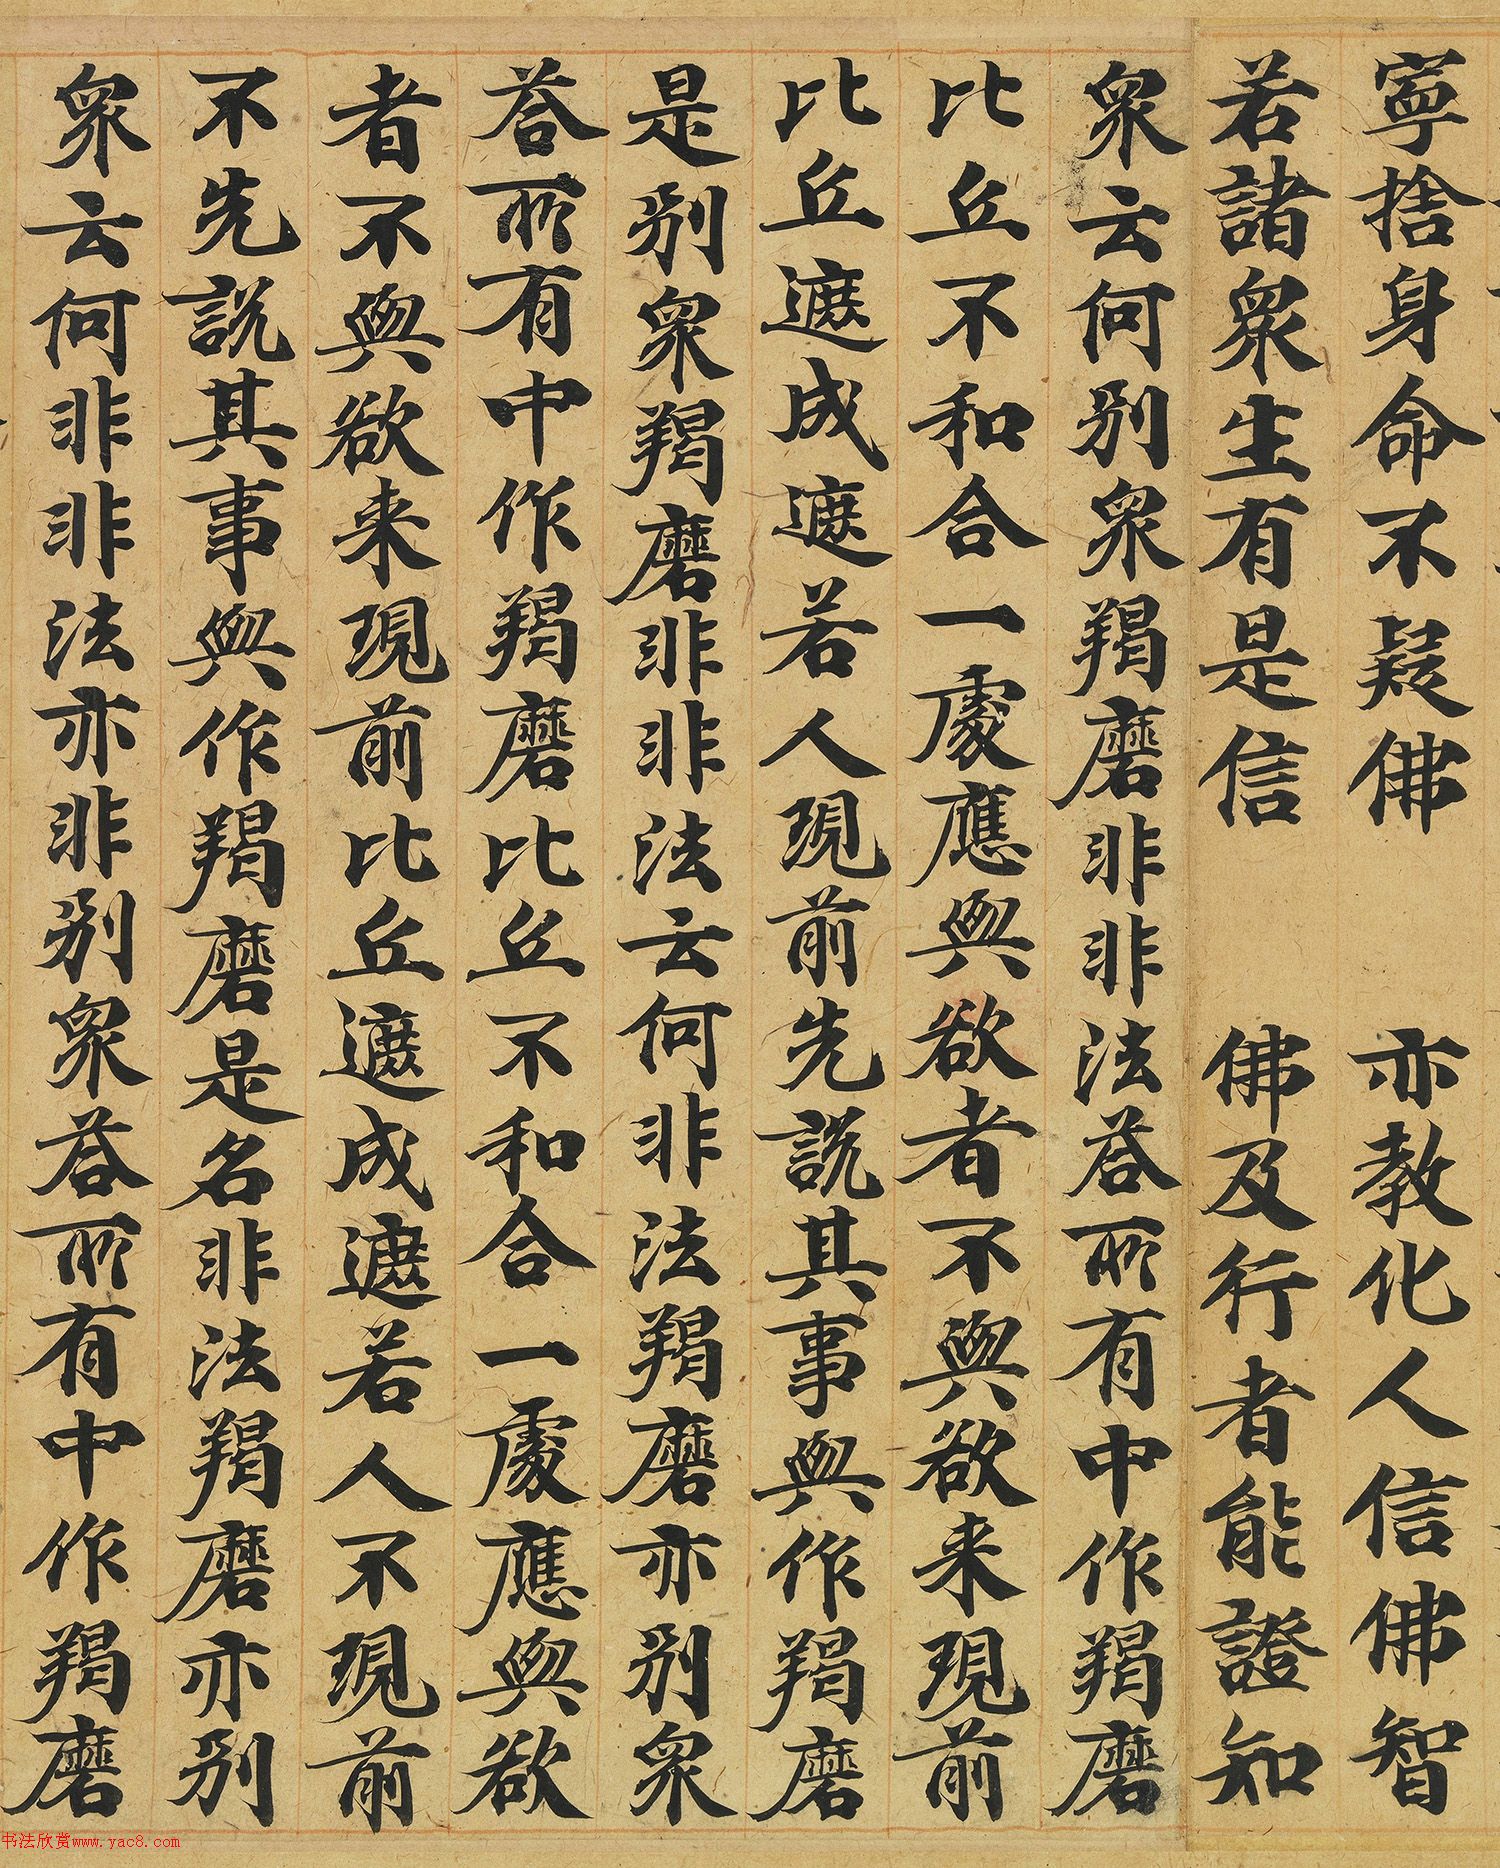 寧捨身命不疑佛　亦教化人信佛智
若諸衆生有是信　佛及行者能證知
衆云何別衆羯磨非非法荅所有中作羯磨
比丘不和合一處應與欲者不與欲来現前
比丘遮成遮若人現前先説其事與作羯磨
是別衆羯磨非非法云何非法羯磨亦別衆
荅所有中作羯磨比丘不和合一處應與欲
者不與欲来現前比丘遮成遮若人不現前
不先説其事與作羯磨是名非法羯磨亦別
衆云何非非法亦非別衆荅所有中作羯磨
书法欣赏www.yac8.com